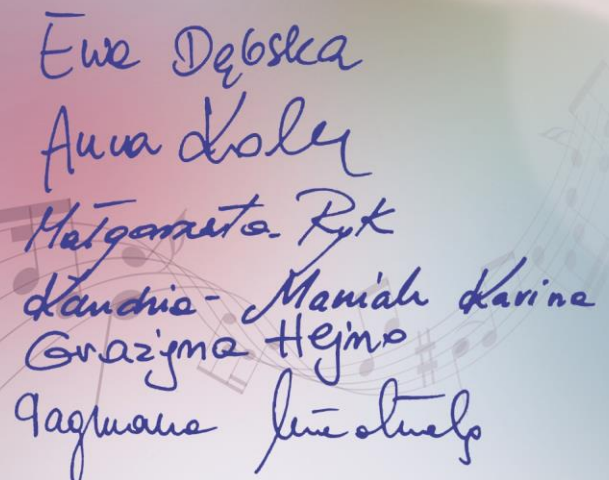 Ewa Dębska
Anna
Małgorzata Ryk
Maniak Karina
Grażyna Hejno
Dagmara